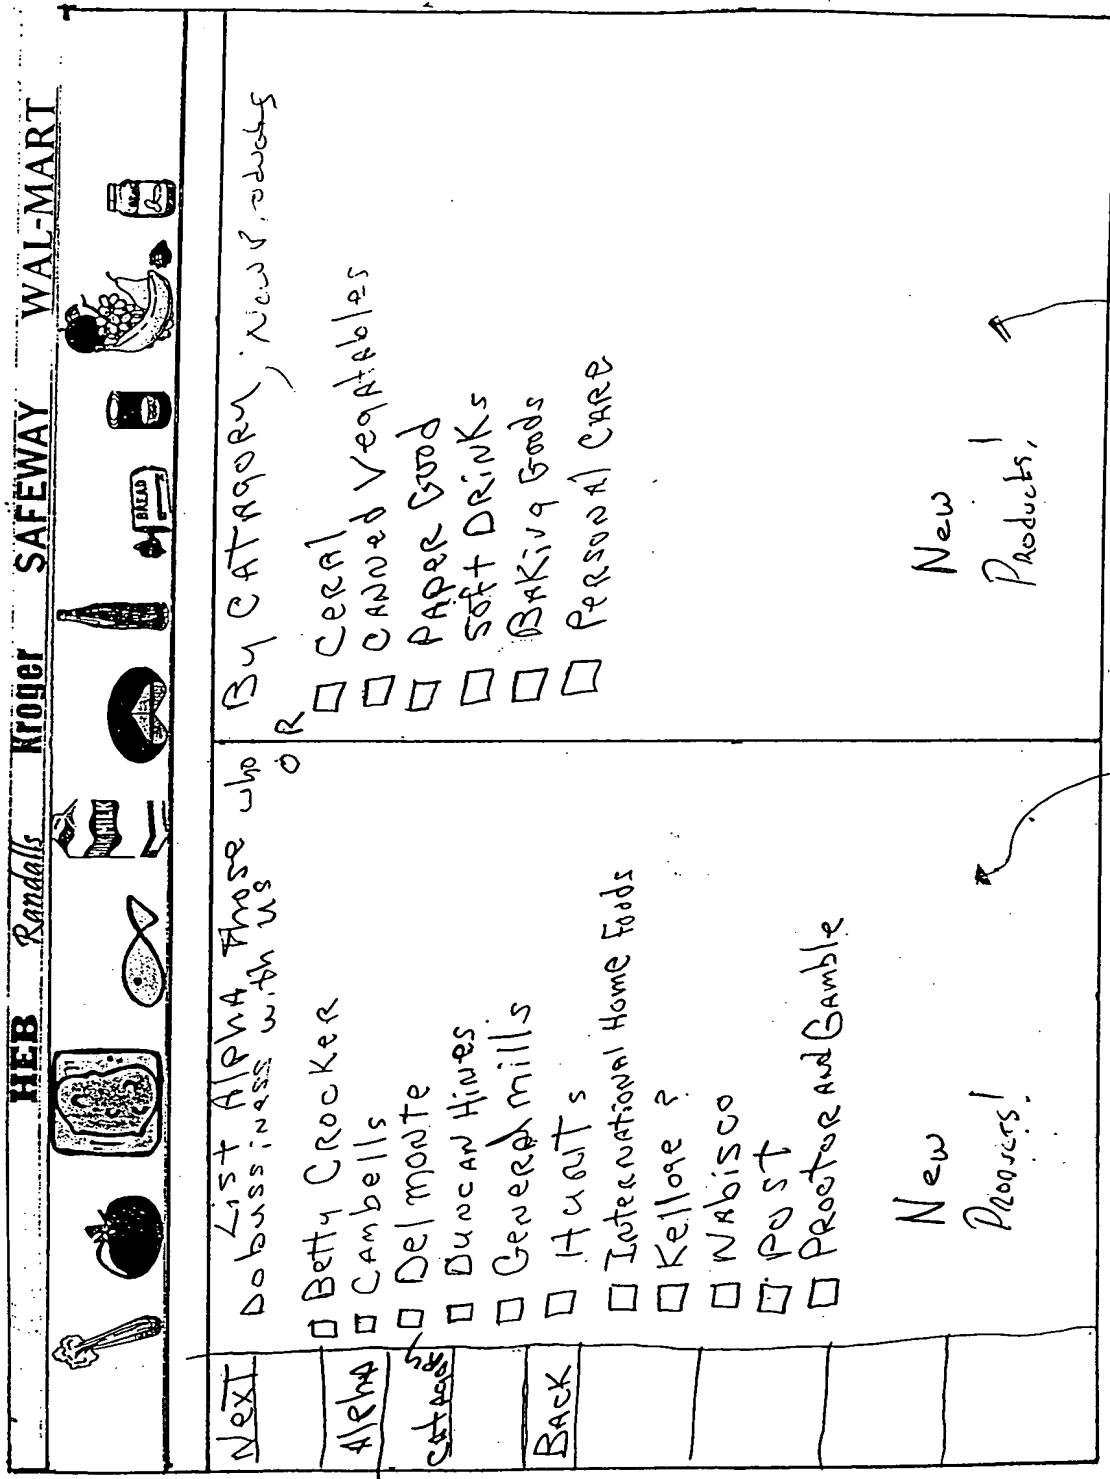 HEB Randalls Kroger SAFEWAY WAL-MART
MILK
BREAD
Next
Alpha
CATAGORY
BACK
List Alpha Those who
Do bussiness with us
Betty CROCKER
CAMbells
Del MONTE
DUNCAN HINES
GENERAl mills
HUNTs
INTERNATIONAL Home Foods
Kelloge ?
NAbisco
POST
PROCTOR AND GAmble
New
PRODUCTS!
OR
By CATAGORY, New Products
CERAl
CANNed VegAtAbles
PAPER Good
Soft DRINKS
BAKING Goods
PERSONAl CARE
New
Products!